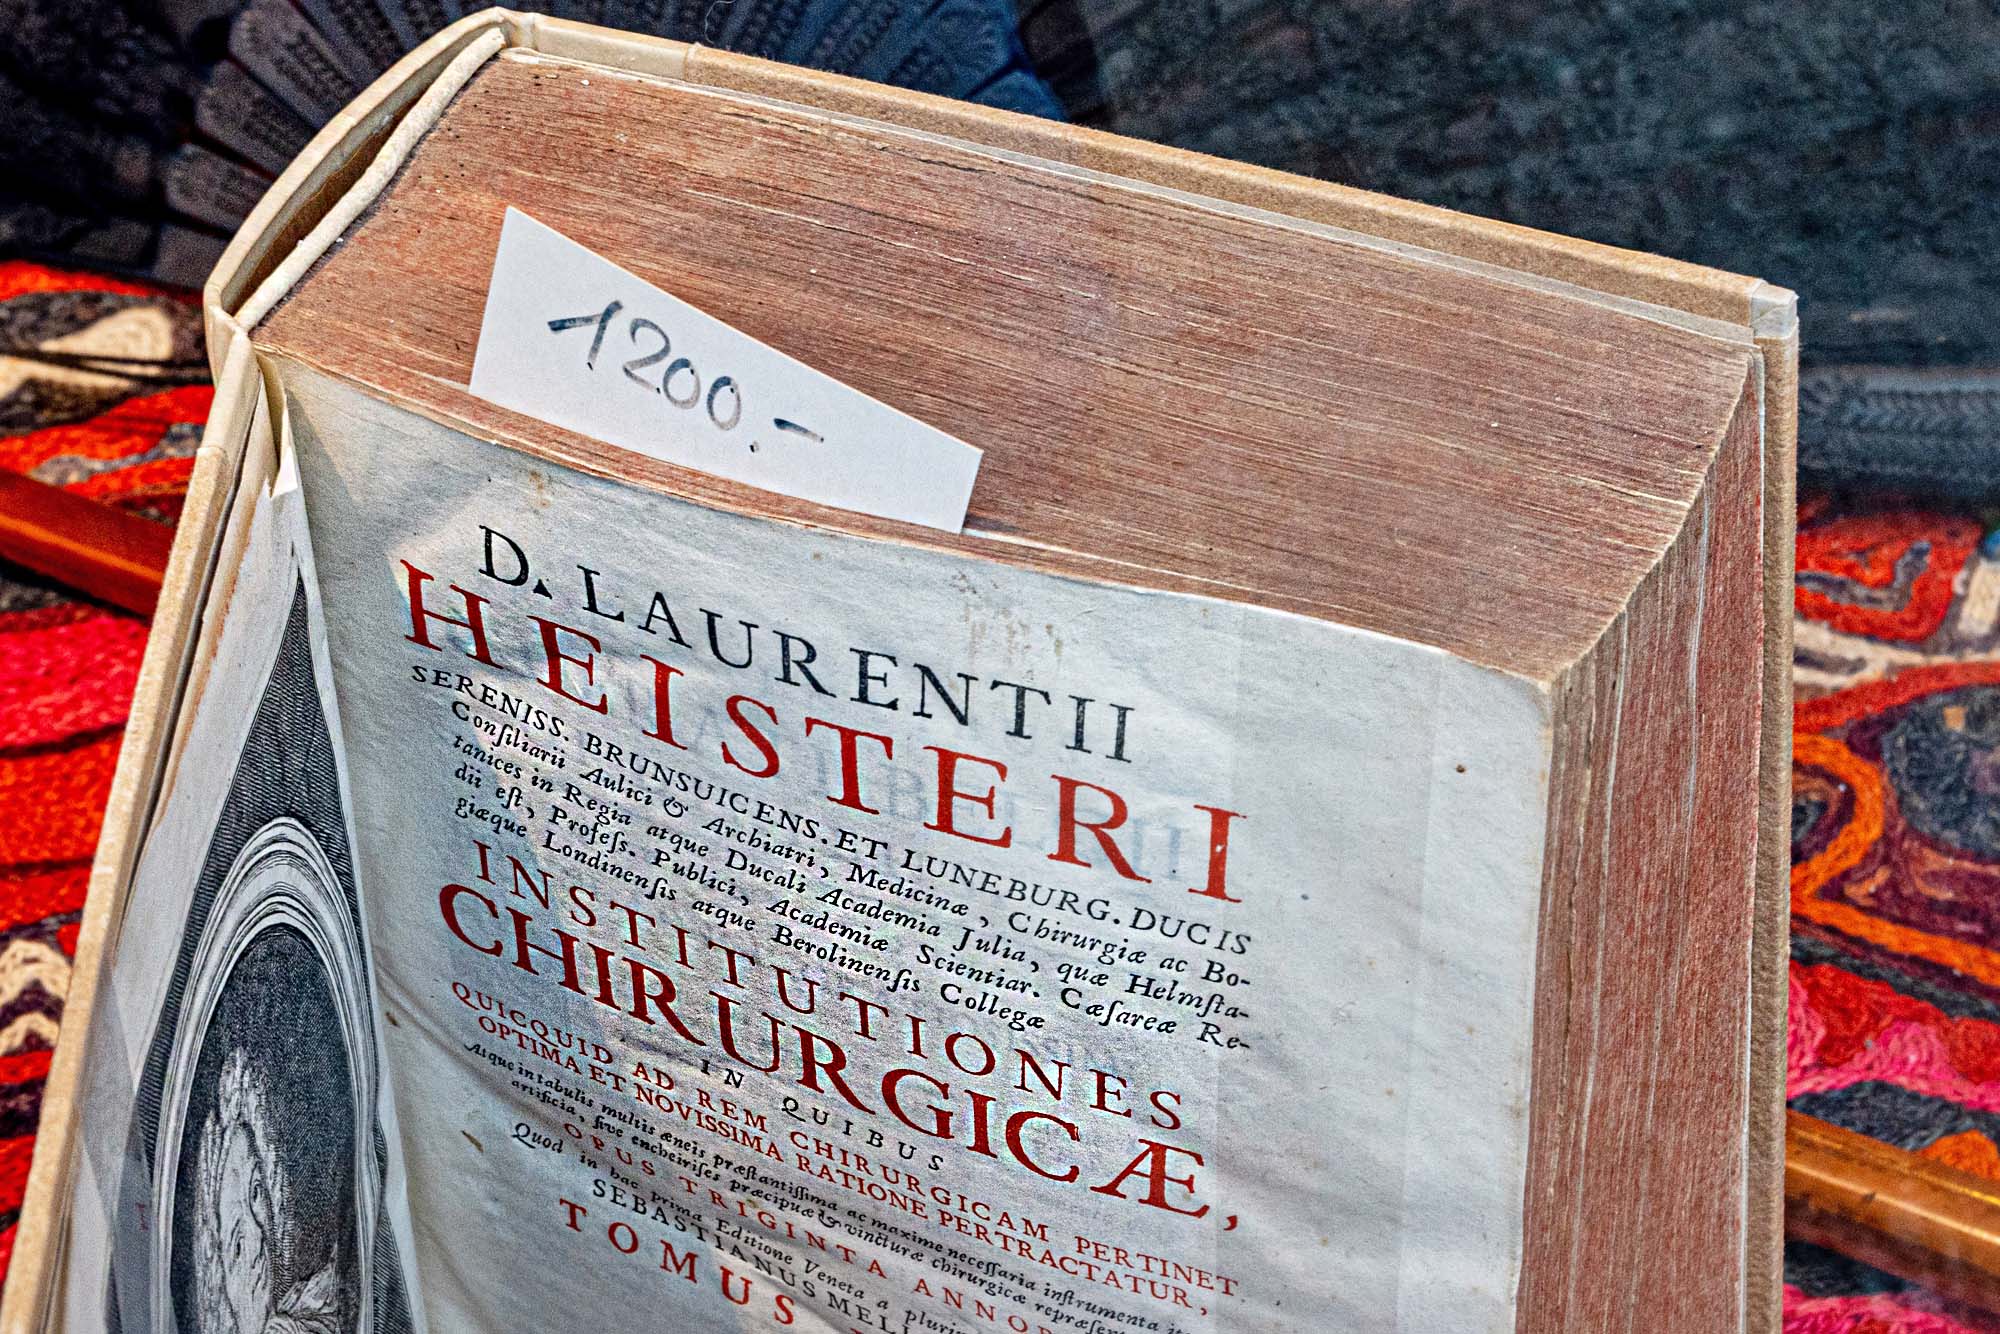 1200.-
D. LAURENTII
HEISTERI
SERENISS. BRUNSUICENS. ET LUNEBURG. DUCIS
Conſiliarii Aulici & Archiatri, Medicinæ, Chirurgiæ ac Bo-
tanices in Regia atque Ducali Academia Julia, quæ Helmſta-
dii eſt, Profeſs. Publici, Academiæ Scientiar. Cæſareæ Re-
giæque Londinenſis atque Berolinenſis Collegæ
INSTITUTIONES
CHIRURGICÆ,
IN QUIBUS
QUICQUID AD REM CHIRURGICAM PERTINET
OPTIMA ET NOVISSIMA RATIONE PERTRACTATUR,
Atque in tabulis multis æneis præſtantiſſima ac maxime neceſſaria inſtrumenta
artificia, ſive encheiriſes præcipuæ & vincturæ chirurgicæ
OPUS TRIGINTA
Quod in hac prima Editione Veneta a
SEBASTIANUS
TOMUS